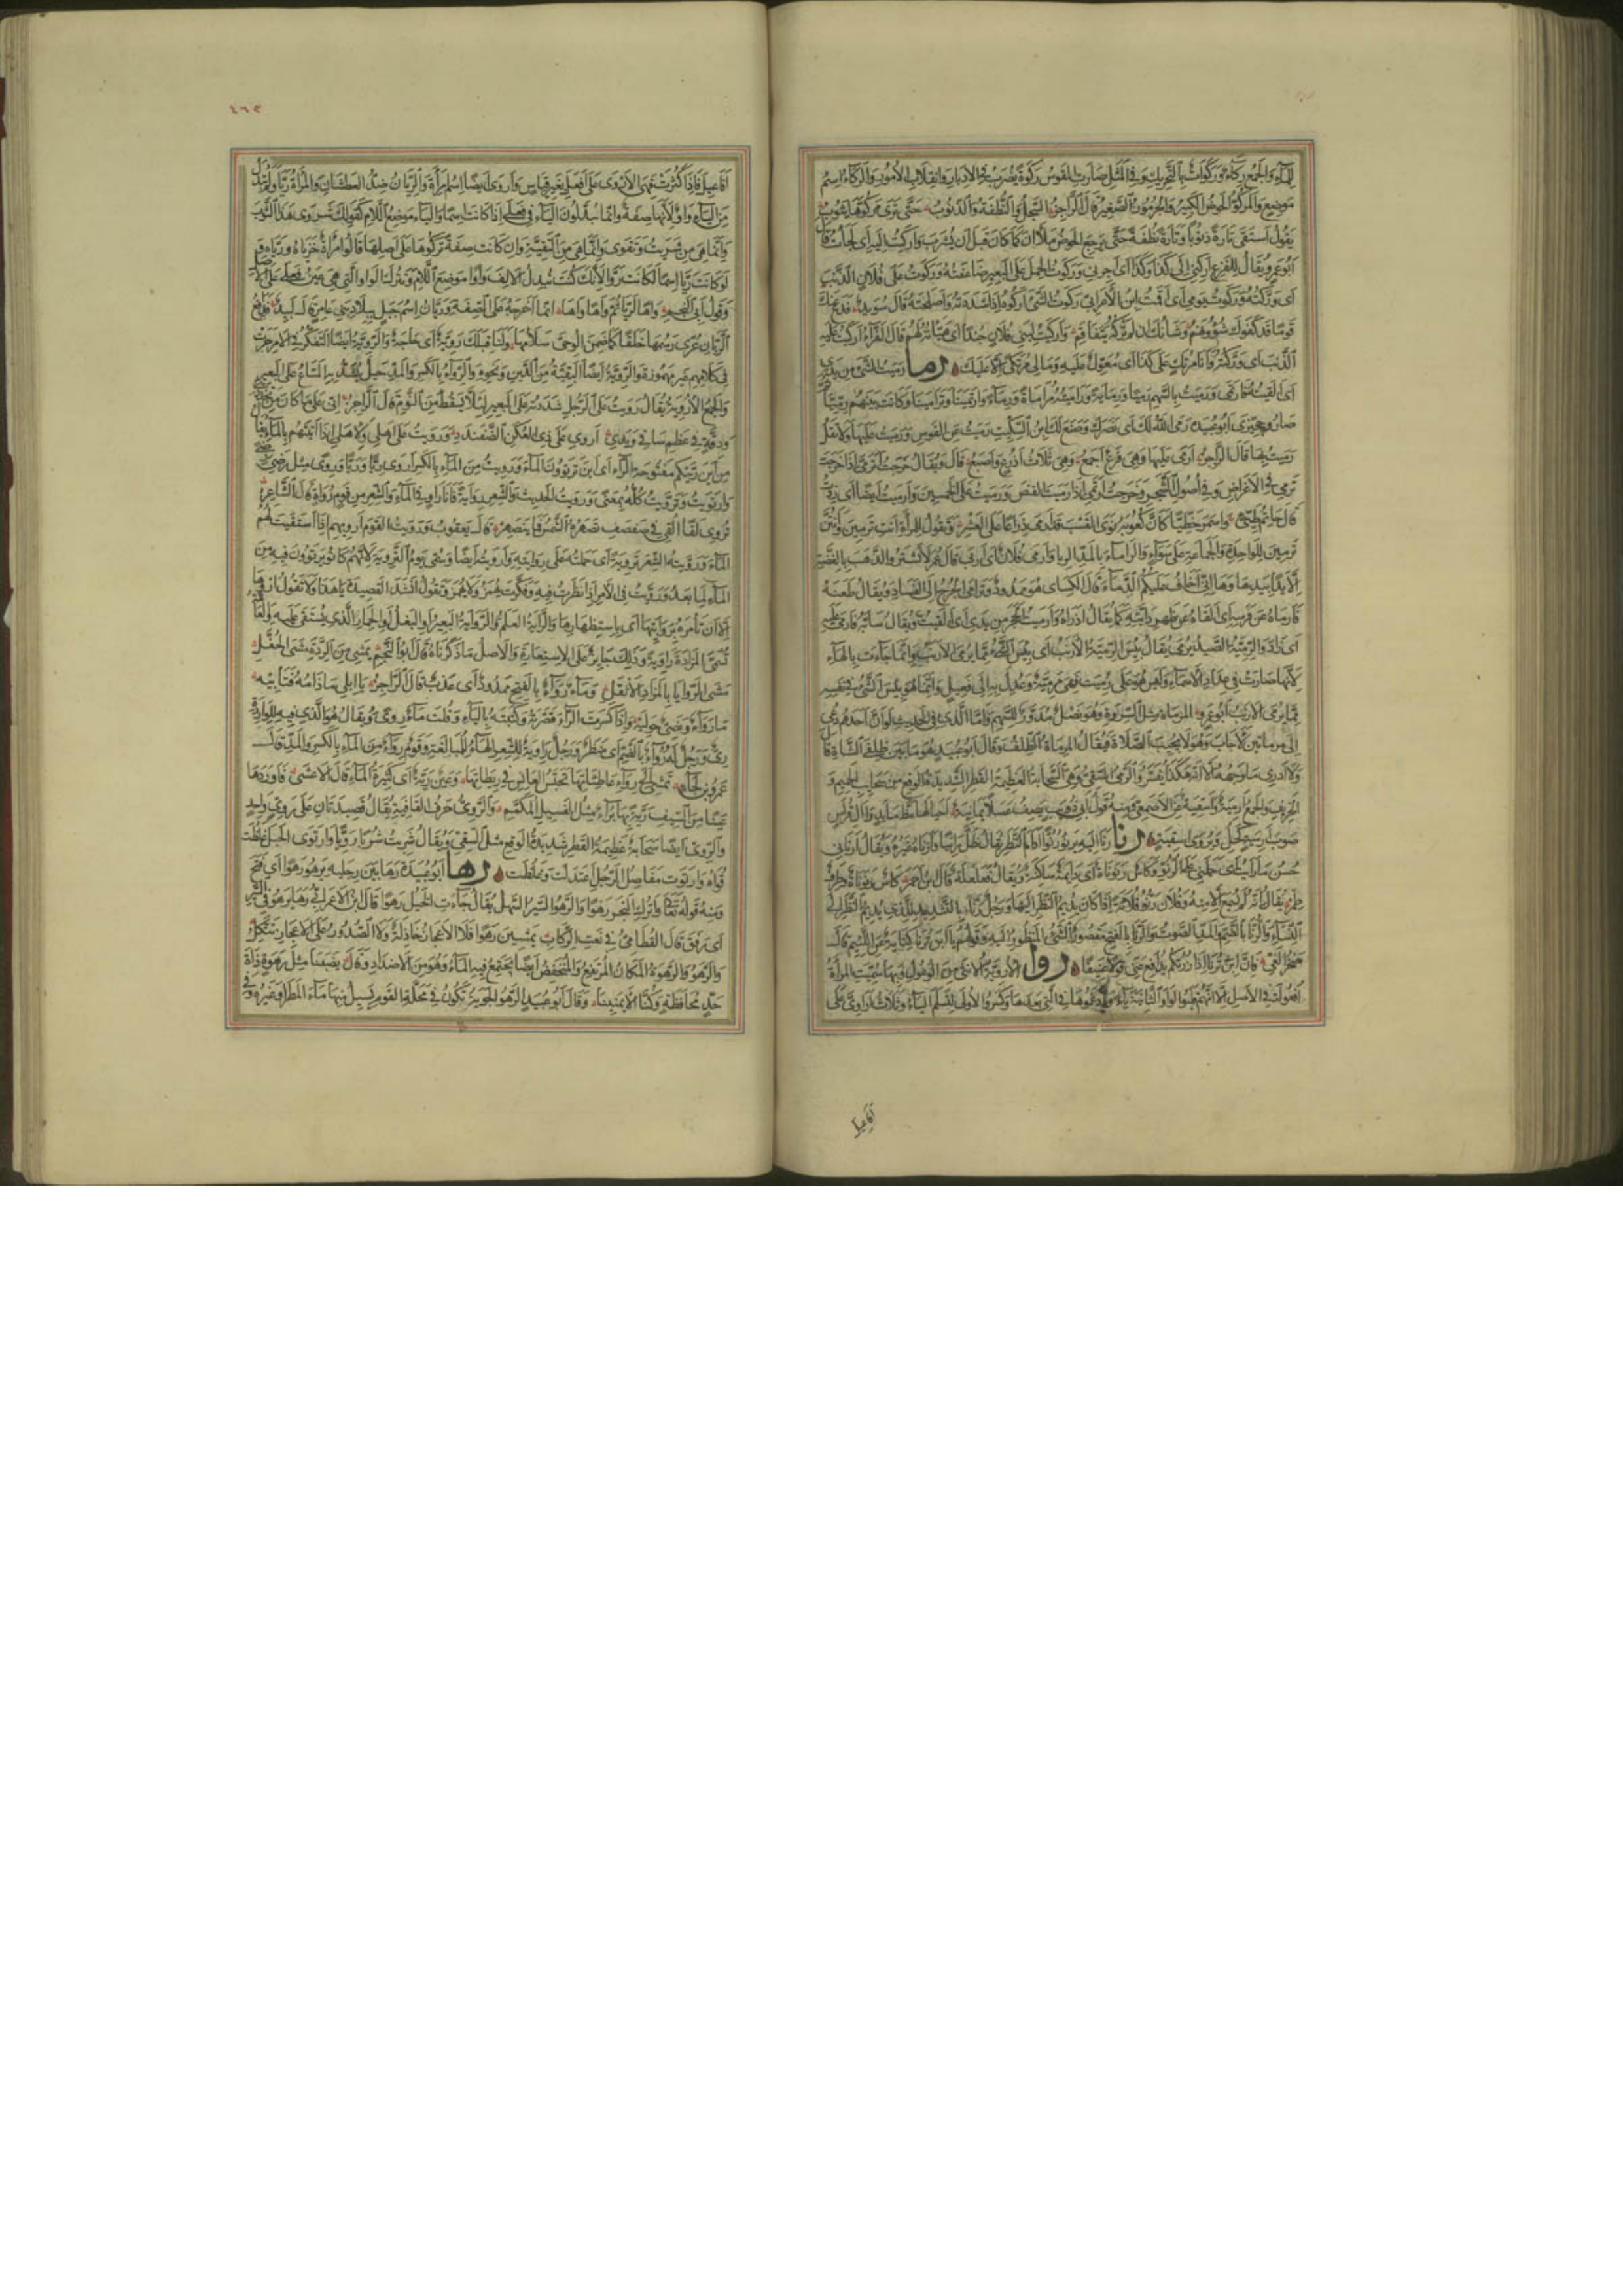 للماء والجمع ركاء وركوات بالتحريك وفي المثل صارت القوس ركوة يضرب في الادبار وانقلاب الامور والركاء اسم
موضع والمركو الحوض الكبير والجرموز الصغير قال الراجز السجل والنطفة والذنوب حتى ترى مركوها يثوب
يقول استقى تارة ذنوبا وتارة نطفة حتى يرجع الحوض ملآن كما كان قبل ان يشرب واركيت اليه اى لجأت قال
ابو عمرو يقال للغريم اركني الى كذا وكذا اى اخرني وركوت الحمل على البعير ضاعفته وركوت على فلان الذنب
اى وركته وركوت يومي اى اقمت ابن الاعرابي ركوت الشئ اركوه اذا شددته واصلحته قال سويد فدع عنك
قوما قد كفوك شؤونهم وشأنك ان لا تركه متفاقم واركيت لبني فلان جندا اى هيأته لهم قال الفراء اركيت عليه
الذنب اى وركته وانا مرتك على كذا اى معول عليه وما لي مرتكى الا عليك رما رميت الشئ من يدى
اى القيته فارتمى ورميت بالسهم رميا ورماية وراميته مراماة ورماء وارتمينا وترامينا وكانت بينهم رميا ثم
صاروا الى حجيزى ابو عبيدة رمى الله لك اى نصرك وصنع لك ابن السكيت رميت عن القوس ورميت عليها ولا تقل
رميت بها قال الراجز ارمى عليها وهي فرع اجمع وهي ثلاث اذرع واصبع قال ويقال خرجت اترمى اذا خرجت
ترمي في الاغراض وفي اصول الشجر وخرجت ارتمي اذا رميت القنص ورميت على الخمسين وارميت ايضا اى زدت
قال حاتم طيئ واسمر خطيا كان كعوبه نوى القسب قد ارمى ذراعا على العشر وتقول للمرأة انت ترمين وانتن
ترمين للواحدة والجماعة على سواء والرماء بالمد الربا وارمى فلان اى اربى قال عمر لا تشتروا الذهب بالفضة
الا يدا بيد هاء وهاء اني اخاف عليكم الرماء قال الكساى هو ممدود وترامى الجرح الى الفساد ويقال طعنه
فارماه عن فرسه اى القاه عن ظهر دابته كما يقال اذراه وارميت الحجر من يدى اى القيت ويقال سابه فارمى عليه
اى زاد والرمية الصيد يرمى يقال بئس الرمية الارنب اى بئس الشئ مما يرمى الارنب وانما جاءت بالهاء
لانها صارت في عداد الاسماء وليس هو على رميت فهي مرمية وعدل به الى فعيل وانما هو بئس الشئ في نفسه
مما يرمى الارنب ابو عمرو المرماة مثل السروة وهو نصل مدور للسهم واما الذى في الحديث لو ان احدهم دعي
الى مرماتين لاجاب وهو لا يجيب الصلاة فيقال المرماة الظلف وقال ابو عبيد هو ما بين ظلفي الشاة قال
ولا ادرى ما وجهه الا انه هكذا يفسر والرمى السقي وهي السحابة العظيمة القطر الشديدة الوقع من سحائب الحميم و
الخريف والجمع ارمية واسقية عن الاصمعي ومنه قول ابي ذؤيب يصف عسلا يمانية احيا لها مظ مائد وآل قراس
صوب ارمية كحل ويروى اسقية رنا رنا اليه يرنو رنوا اذا ادام النظر يقال ظل رانيا وارناه غيره ويقال ارناني
حسن ما رأيت اى حملني على الرنو وكأس رنوناة اى دائمة ساكنة ويقال فعلعلة قال ابن احمر كأس رنوناة وطرف
طمر يقال انه لم يسمع الا منه وفلان رنو فلانة اذا كان يديم النظر اليها ورجل رناء بالتشديد للذى يديم النظر الى
النساء والرناء بالضم والمد الصوت والرنا بالفتح مقصور الشئ المنظور اليه وقولهم يا ابن ترنا كناية عن اللئيم قال
صخر الغي فان ابن ترنا اذا زرتكم يدافع عني قولا عنيفا روا الاروية الانثى من الوعول وبها سميت المرأة
افعولة في الاصل الا انهم قلبوا الواو الثانية ياء وادغموها في التي بعدها وكسروا الاولى لتسلم الياء وثلاث اراوى على
افاعيل
٤٦٢
افاعيل فاذا كثرت فهي الاروى على افعل بغير قياس واروى ايضا اسم امرأة والريان ضد العطشان والمرأة ريا ولم تبدل
من الياء واو لانها صفة وانما يبدلون الياء في فعلى اذا كانت اسما والياء موضع اللام كقولك شروى هذا الثوب
وانما هي من شريت وتقوى وانما هي من التقية وان كانت صفة تركوها على اصلها قالوا امرأة خزيا وريا و
لو كانت ريا اسما لكانت روا لانك كنت تبدل الالف واوا موضع اللام وتترك الواو التي هي عين فعلى على الاصل
وقول ابي النجم واها لريا ثم واها واها انما اخرجه على الصفة وريان اسم جبل ببلاد بني عامر قال لبيد فمدافع
الريان عرى رسمها خلقا كما ضمن الوحي سلامها ولنا قبلك روية اى حاجة والروية ايضا التفكر في الامر جرت
في كلامهم غير مهموزة والروية ايضا البقية من الدين ونحوه والرواء بالكسر والمد حبل يشد به المتاع على البعير
والجمع الاروية يقال رويت على الرجل شددته على البعير لئلا يسقط من النوم قال الراجز اني على ما كان من تخددى
ودقة في عظم ساقي ويدى اروي على ذى العكن الضفندد ورويت على اهلي ولاهلي اذا اتيتهم بالماء يقال
من اين ريتكم مفتوحة الراء اى من اين ترتوون الماء ورويت من الماء بالكسر اروى ريا وريا وروى مثل رضى
وارتويت وترويت كله بمعنى ورويت الحديث والشعر رواية فانا راو في الماء والشعر من قوم رواة قال الشاعر
تروى لقا القي في صفصف تصهره الشمس فما ينصهر قال يعقوب ورويت القوم ارويهم اذا استقيت لهم
الماء ورويته الشعر تروية اى حملته على روايته وارويته ايضا وسمي يوم التروية لانهم كانوا يرتوون فيه من
الماء لما بعده ورويت في الامر اذا نظرت فيه وفكرت يهمز ولا يهمز وتقول انشد القصيدة يا هذا ولا تقل اروها
الا ان تأمره بروايتها اى باستظهارها والراية العلم والراوية البعير او البغل او الحمار الذى يستقى عليه والعامة
تسمى المزادة راوية وذلك جايز على الاستعارة والاصل ما ذكرناه قال ابو النجم تمشي من الردة مشى الحفل
مشى الروايا بالمزاد الاثقل وماء رواء بالفتح ممدود اى عذب قال الراجز يا ابلي ما ذامه فتأبيه
ماء رواء ونصي حوليه واذا كسرت الراء قصرته وكتبته بالياء وقلت ماء روى ويقال هو الذى فيه للواردة
رى ورجل له رواء بالضم اى منظر ورجل راوية للشعر والهاء للمبالغة وقوم رواء من الماء بالكسر والمد قال
عمر بن لجاء تمشي الى رواء عاطناتها تحبس العانس في ريطاتها وعين رية اى كثيرة الماء قال الاعشى فاوردها
عينا من السيف رية بها برأ مثل الفسيل المكمم والروى حرف القافية يقال قصيدتان على روى واحد
والروى ايضا سحابة عظيمة القطر شديدة الوقع مثل السقي ويقال شربت شربا رويا وارتوى الحبل غلظت
قواه وارتوت مفاصل الرجل اعتدلت وغلظت رها ابو عبيدة رها بين رجليه يرهو رهوا اى فتح
ومنه قوله تعالى واترك البحر رهوا والرهو السير السهل يقال جاءت الخيل رهوا قال ابن الاعرابي رها يرهو في السير
اى رفق قال القطامي في نعت الركاب يمشين رهوا فلا الاعجاز خاذلة ولا الصدور على الاعجاز تتكل
والرهو والرهوة المكان المرتفع والمنخفض ايضا يجتمع فيه الماء وهو من الاضداد وقال نصبنا مثل رهوة ذات
حد محافظة وكنا الايمنينا وقال ابو عبيد الرهو الجوبة تكون في محلة القوم يسيل فيها ماء المطر او غيره وفي